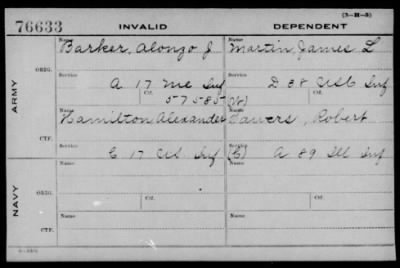 (3-H-3)
76633 INVALID DEPENDENT
Name Name
Barker, Alonzo J Martin, James L
ORIG. Service Service
A 17 Me Inf D 38 Inf
Ctf. Ctf.
57585
ARMY
Name Name
Hamilton Alexander Robert
CTF. Service Service
C 17 Inf A 89 Ill Inf
Name Name
ORIG. Service Service
NAVY
Name Name
CTF. Service Service